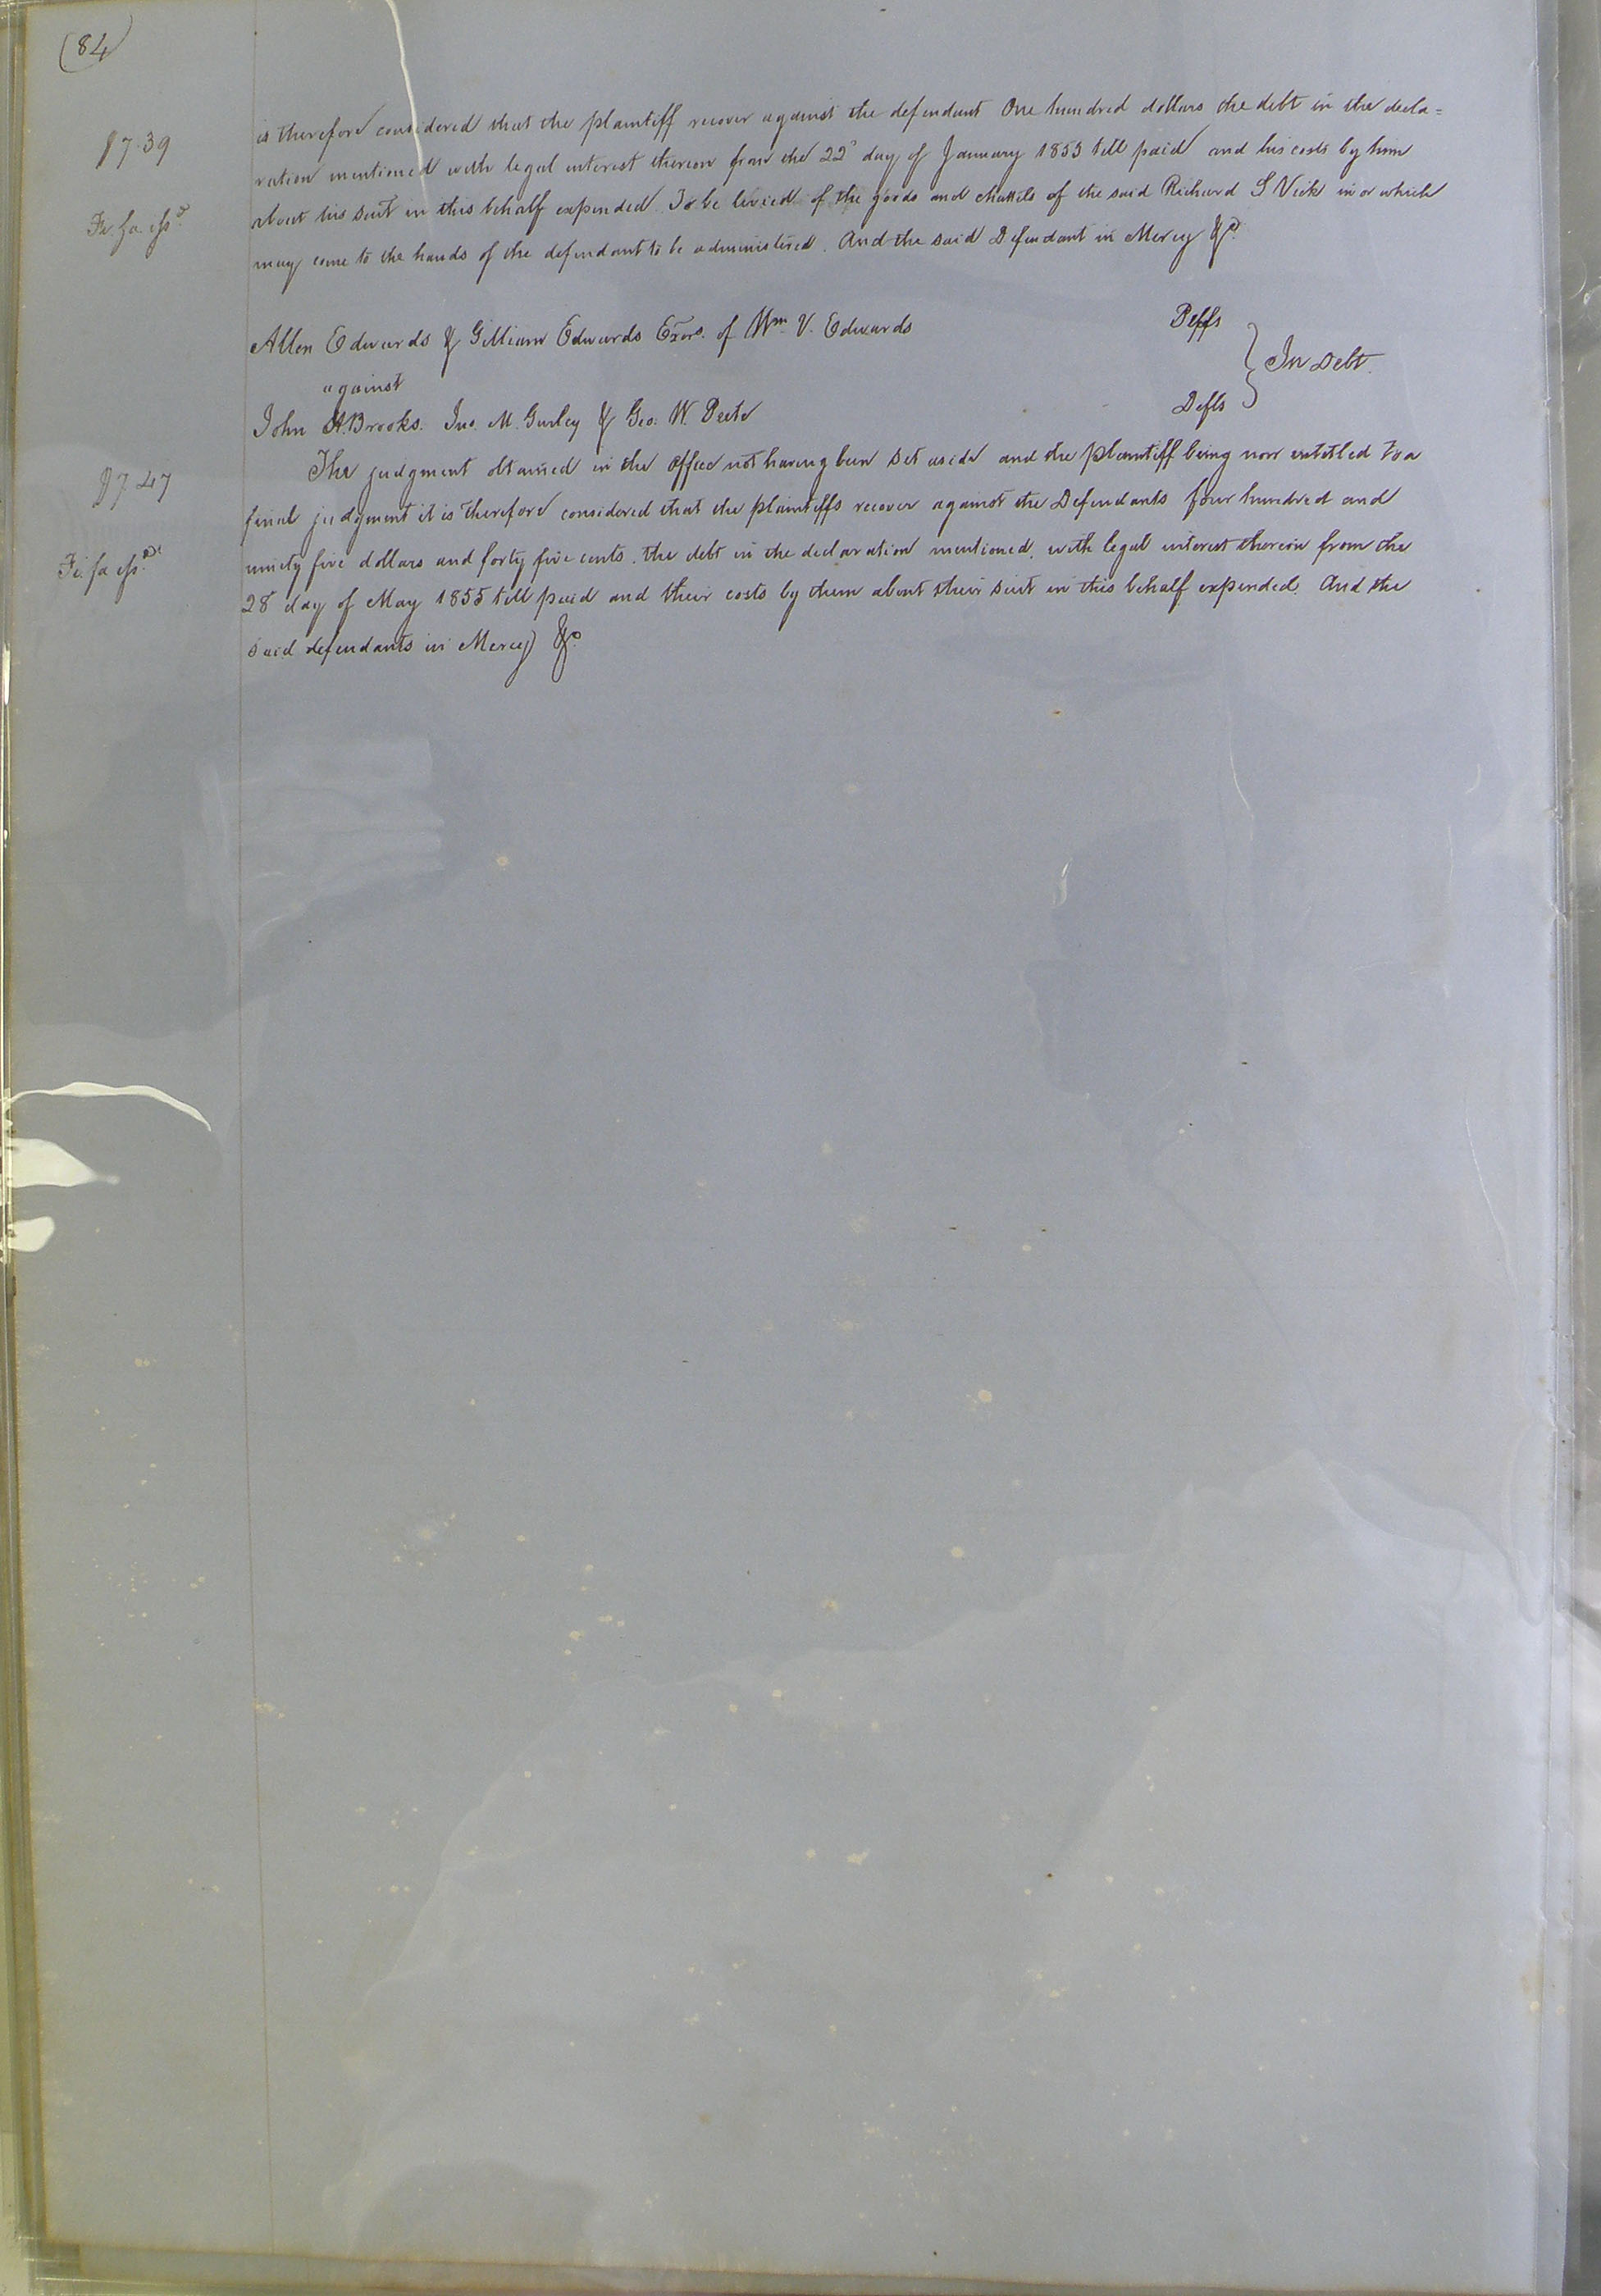 (84)
is therefore considered that the plaintiff recover against the defendant One hundred dollars the debt in the decla=
$7.39
ration mentioned with legal interest thereon from the 22d day of January 1853 till paid and his costs by him
about his suit in this behalf expended. To be levied of the goods and chattels of the said Richard S Vick in or which
Fi. fa issd
may come to the hands of the defendant to be administered. And the said Defendant in Mercy &c.
Allen Edwards & Gilliam Edwards Exors. of Wm V. Edwards Plffs
In Debt.
against
John A. Brooks. Jno. M. Gurley & Geo. W. Peete Defts
The judgment obtained in the office not having been set aside and the plaintiff being now entitled to a
$7.47
final judgment it is therefore considered that the plaintiffs recover against the Defendants four hundred and
ninety five dollars and forty five cents. the debt in the declaration mentioned, with legal interest thereon from the
Fi. fa issd.
28 day of May 1855 till paid and their costs by them about their suit in this behalf expended. And the
said defendants in Mercy &c.